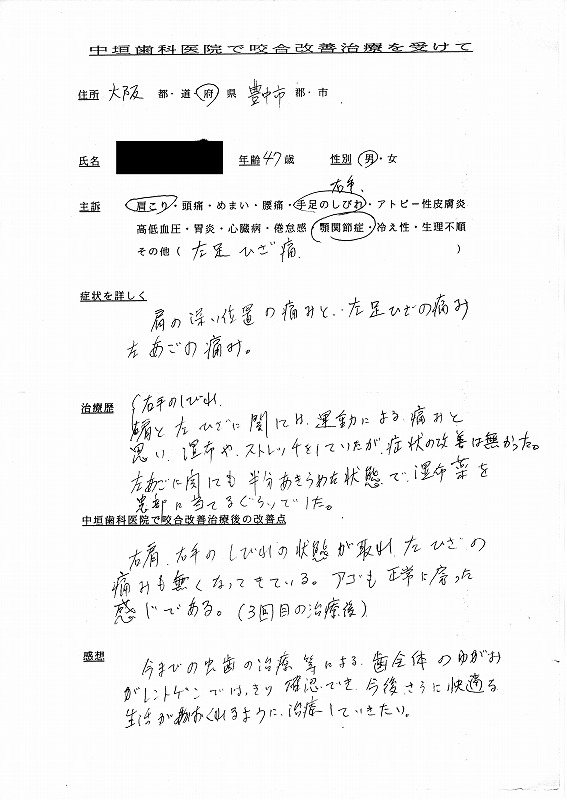 中垣歯科医院で咬合改善治療を受けて
住所 大阪 都・道・府・県 豊中市 郡・市
氏名 年齢 47歳 性別 男・女
右手
主訴 肩こり・頭痛・めまい・腰痛・手足のしびれ・アトピー性皮膚炎
高低血圧・胃炎・心臓病・倦怠感・顎関節症・冷え性・生理不順
その他( 左足 ひざ 痛 )
症状を詳しく
肩の深い位置の痛みと、左足ひざの痛み
左あごの痛み。
右手のしびれ
治療歴
肩と左ひざに関しては、運動による痛みと
思い、湿布や、ストレッチをしていたが、症状の改善は無かった。
左あごに関しても半分あきらめた状態で、湿布薬を
患部に当てるぐらいでした。
中垣歯科医院で咬合改善治療後の改善点
右肩、右手のしびれの状態が取れ、左ひざの
痛みも無くなってきている。アゴも正常に戻った
感じである。(3回目の治療後)
感想
今までの虫歯の治療等による、歯全体のゆがみ
がレントゲンではっきり確認でき、今後さらに快適な
生活がおくれるように、治療していきたい。